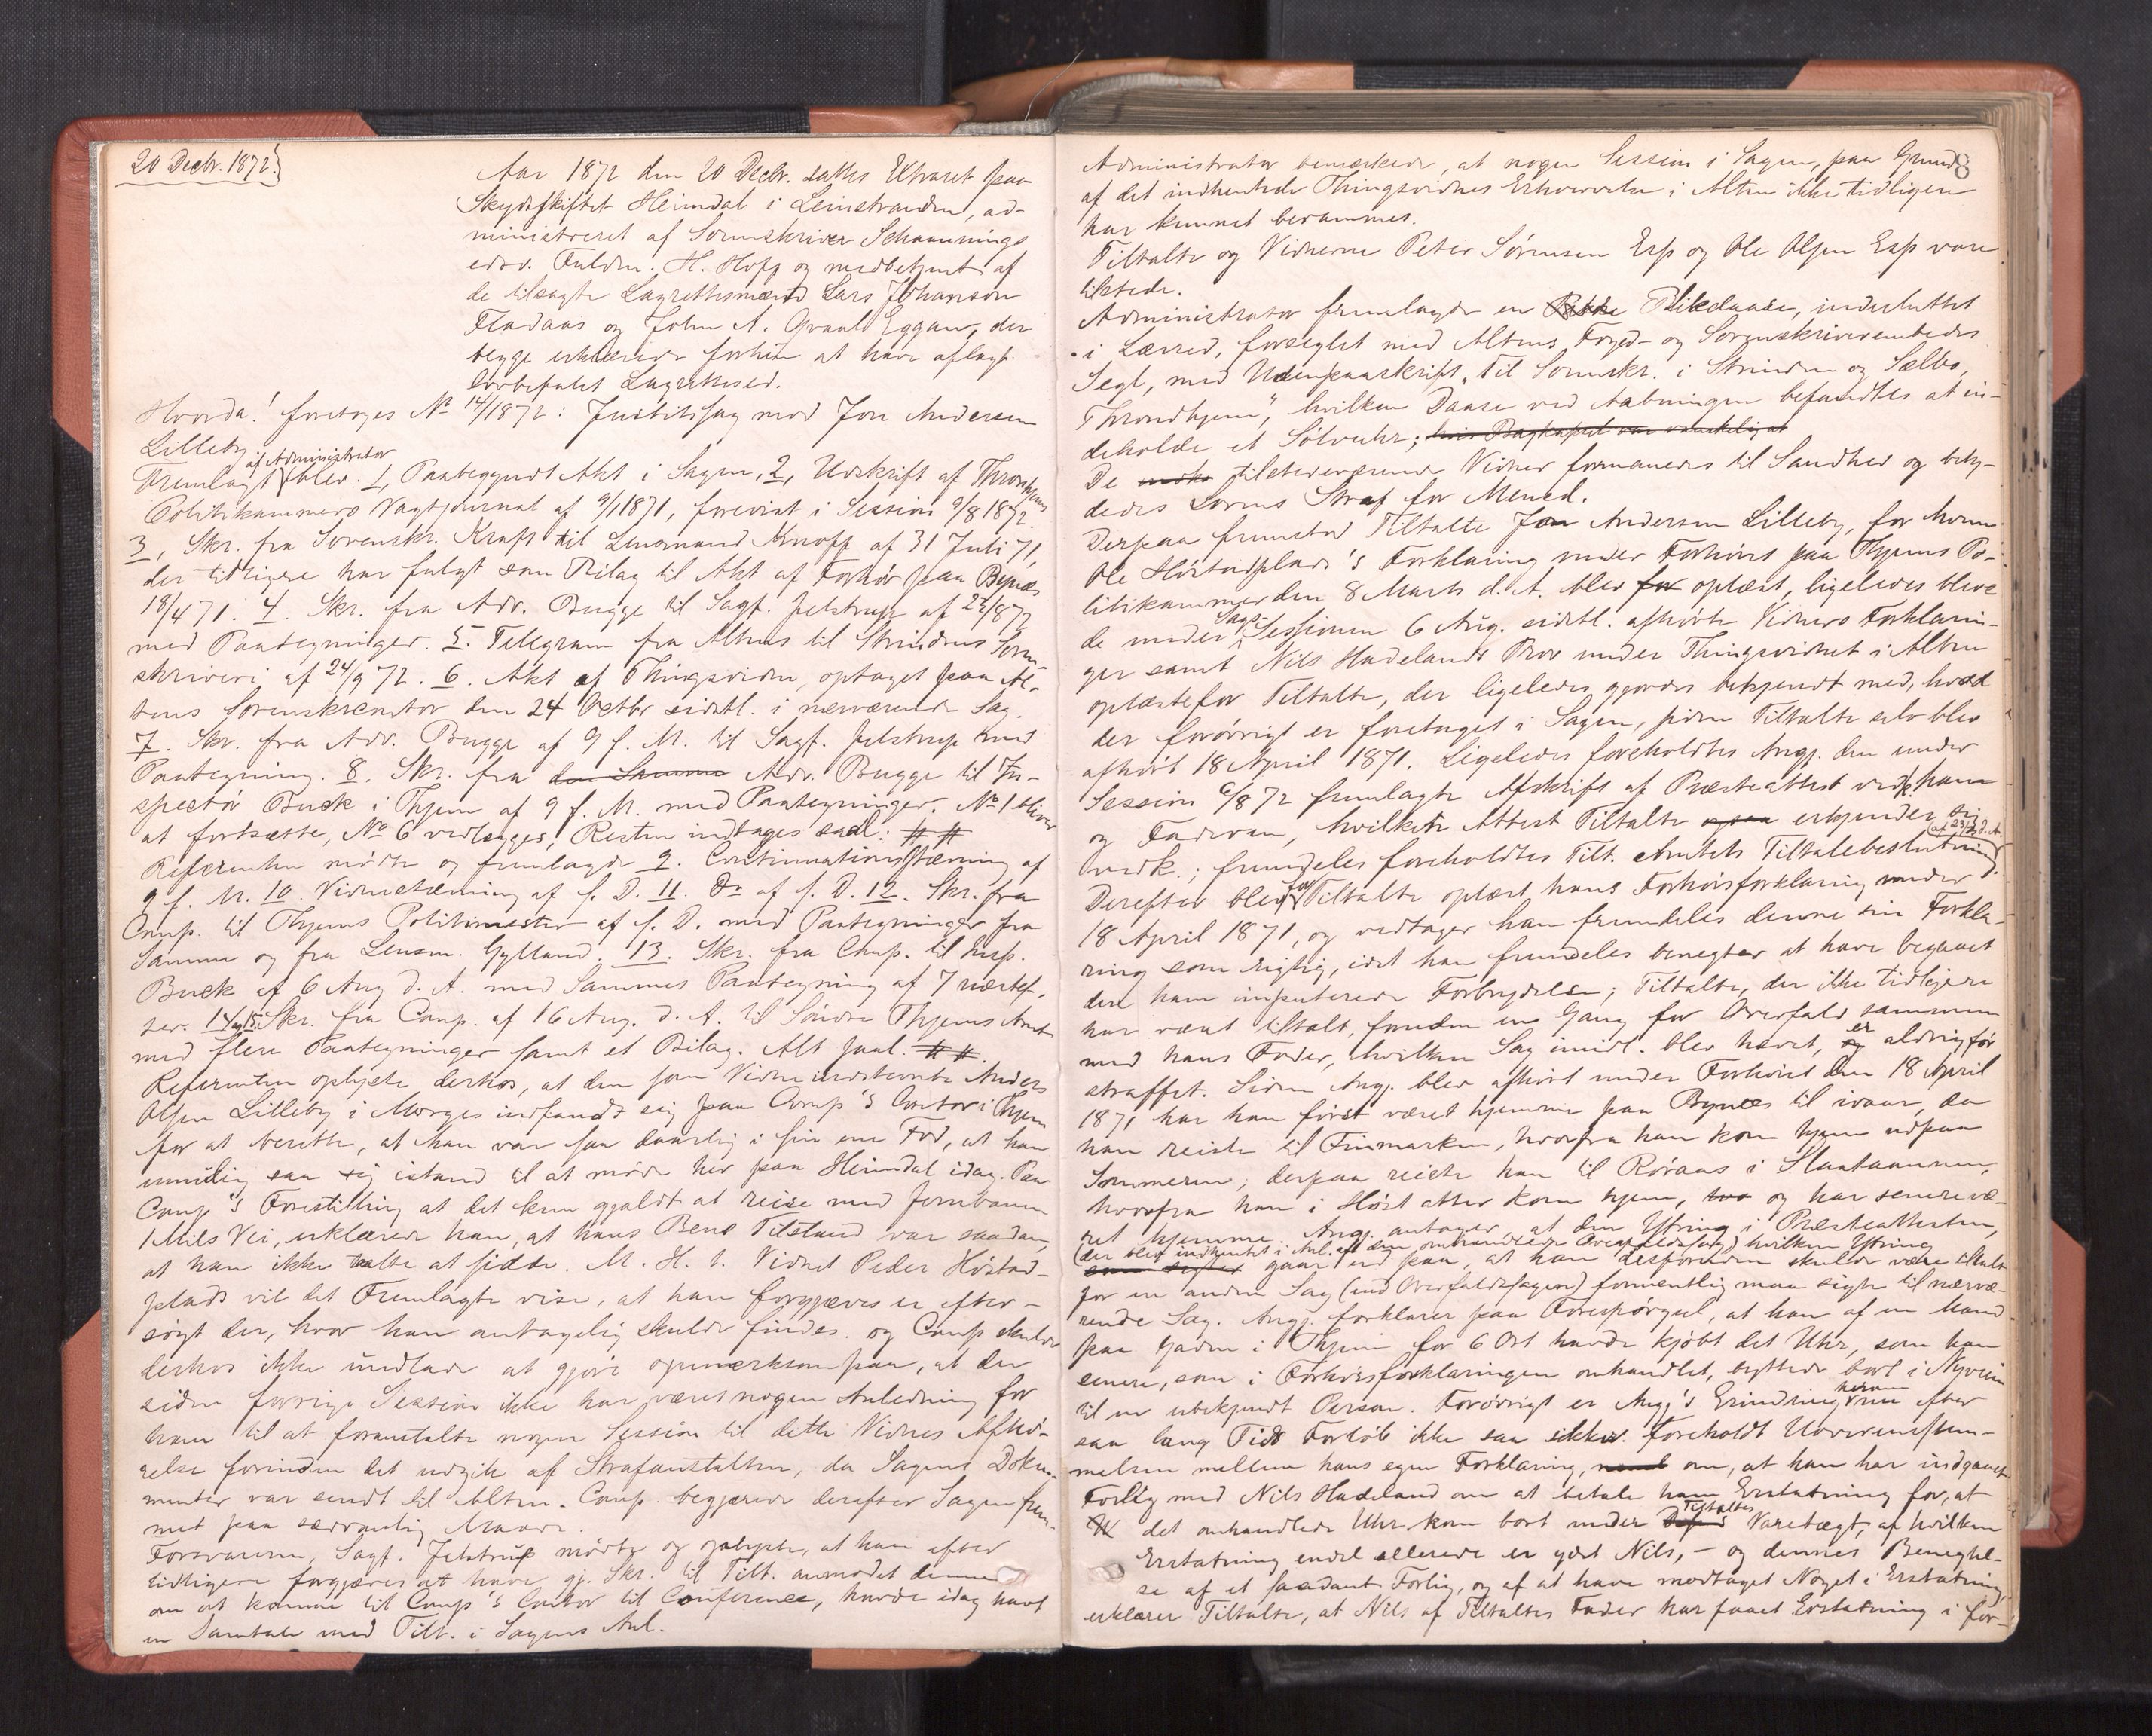 20 Decbr. 1872.
Aar 1872 den 20 Decbr. sattes Extraret paa
Skydsskiftet Heimdal i Leinstranden, ad-
ministreret af Sorenskriver Schaanings
edsv. Fuldm. H. Hoff og medbetjent af
de tilsagte Lagrettesmænd Lars Johanson
Fladaas og John A. Qvaal Eggan, der
begge erklærede forhen at have aflagt
lovbefalet Lagrettesed.
Hvorda! foretoges No 14/1872: Justitssag mod Jon Andersen
Lilleby.
af Administrator
Fremlagt blev: 1, Paabegyndt Akt i Sagen, 2, Udskrift af Thronhjems
Politikammers Vagtjournal af 9/1 1871, forevist i Session 9/8 1872.
3, Skr. fra Sorenskr. Kraft til Lensmand Knoff af 31 Juli 71,
der tidligere har fulgt som Bilag til Akt af Forhør paa Bynæs
18/4 71. 4. Skr. fra Adv. Bugge til Sagf. Jelstrup af 22/8 72
med Paategninger. 5. Telegram fra Altens til Strindens Soren-
skriveri af 24/9 72. 6. Akt af Thingsvidne, optaget paa Al-
tens Sorenskrenstor den 24 Octbr sidstl. i nærværende Sag.
7. Skr. fra Adv. Bugge af 9 f. M. til Sagf. Jelstrup med
Paategning. 8. Skr. fra den Samme Adv. Bugge til In-
spectør Buck i Thjem af 9 f. M. med Paategninger. No 1 bliver
at fortsætte, No 6 vedlægges, Resten indtages saal: # #
Referenten mødte og fremlagde 9. Continuationsstævning af
9 f. M. 10. Vidnestævning af s. D. 11. Do af s. D. 12. Skr. fra
Comp. til Thjems Politimester af s. D. med Paategninger fra
Samme og fra Lensm. Gylland. 13. Skr. fra Comp. til Insp.
Buck af 6 Aug d. A. med Sammes Paategning af 7 næstef.
ser. 14 og 15. Skr. fra Comp. af 16 Aug. d. A. til Søndre Thjems Amt
med flere Paategninger samt et Bilag. Alt saal: # #.
Referenten oplyste derhos, at den som Vidne indstevnte Anders
Olsen Lilleby i Morges indfandt sig paa Comp's Contor i Thjem
for at berette, at han var saa daarlig i sin ene Fod, at han
umulig saa sig istand til at møde her paa Heimdal idag. Paa
Comp's Forestilling at det kun gjaldt at reise med Jernbanen
1 Mils Vei, erklærede han, at hans Bens Tilstand var saadan,
at han ikke taalte at sidde. M. H. t. Vidnet Peder Høstad-
plads vil det Fremlagte vise, at han forgjæves er efter-
søgt der, hvor han antagelig skulde findes. og Comp skulde
derhos ikke undlade at gjøre opmærksom paa, at der
siden forrige Session ikke har været nogen Anledning for
ham til at foranstalte nogen Session til dette Vidnes Afhø-
relse forinden det udgik af Strafanstalten, da Sagens Doku-
menter var sendt til Alten. Comp. begjærede derefter Sagen frem-
met paa sædvanlig Maade.
Forsvareren, Sagf. Jelstrup mødte og oplyste, at han efter
tidligere forgjæves at have gj. Skr. til Tilt. anmodet denne
om at komme til Comp's Contor til Conference, havde idag havt
en Samtale med Tilt. i Sagens Anl.
8
Administrator bemærkede, at nogen Session i Sagen, paa Grund
af det indhentede Thingsvidnes Erhvervelse i Alten ikke tidligere
har kunnet berammes.
Tiltalte og Vidnerne Peter Sørensen Esp og Ole Olsen Esp vare
tilstede.
Administrator fremlagde en Blikdaase, indesluttet
i Lærred, forseglet med Altens Foged- og Sorenskriverembedes
Segl, med Udenpaaskrift "Til Sorenskr. i Strinden og Sælbo,
Throndhjem", hvilken Daase ved Aabningen befandtes at in-
deholde et Sølvuhr; hvis Bagkapsel var vanskelig at
De tilstedeværende Vidner formanedes til Sandhed og bety-
dedes Lovens Straf for Mened.
Derpaa fremstod Tiltalte Jon Andersen Lilleby, for hvem
Ole Høstadplads's Forklaring under Forhøret paa Thjems Po-
litikammer den 8 Marts d. A. blev for oplæst, ligeledes bleve
de under Sags-Sessionen 6 Aug. sidstl. afhørte Vidners Forklarin-
ger samt Nils Hadelands Prov under Thingsvidnet i Alten
oplæste for Tiltalte, der ligeledes gjordes bekjendt med, hvad
der forøvrigt er foretaget i Sagen, siden Tiltalte selv blev
afhørt 18 April 1871. Ligeledes foreholdtes Angj. den under
Session 6/8 72 fremlagte Afskrift af Præsteattest vedk. ham
og Faderen, hvilken Attest Tiltalte ogsaa erkjender sig
vedk.; fremdeles foreholdtes Tilt. Amtets Tiltalebeslutning (af 23/7 d. A.).
Derefter blev for Tiltalte oplæst hans Forhørsforklaring under
18 April 1871, og vedtager han fremdeles denne sin Forkla-
ring som rigtig, idet han fremdeles benegter at have begaaet
den ham imputerede Forbrydelse; Tiltalte, der ikke tidligere
har været tiltalt, foruden en Gang for Overfald sammen
med hans Fader, hvilken Sag imidl. blev hævet, er aldrig før
straffet. Siden Angj. blev afhørt under Forhøret den 18 April
1871 har han først været hjemme paa Bynæs til ivaar, da
han reiste til Finmarken, hvorfra han kom hjem udpaa
Sommeren; derpaa reiste han til Røraas i Slaataannen,
hvorfra han i Høst atter kom hjem, og har senere væ-
ret hjemme. Angj. antager at den Yttring i Præsteattesten,
(der blev indhentet i Anl. af den omhandlede Overfaldssag) hvilken Yttring
gaar ud paa, at han desforuden skulde være tiltalt
for en anden Sag (end Overfaldssagen) formentlig maa sigte til nærvæ-
rende Sag. Angj. forklarer paa Forespørgsel, at han af en Mand
paa Gaden i Thjem for 6 Ort havde kjøbt det Uhr, som han
senere, som i Forhørsforklaringen omhandlet, byttede bort i Nyveien
til en ubekjendt Person. Forøvrigt er Angj's Erindring herom efter
saa lang Tids Forløb ikke saa sikker. Foreholdt Uoverensstem-
melsen mellem hans egen Forklaring, om, at han har indgaaet
Forlig med Nils Hadeland om at betale ham Erstatning for, at
det omhandlede Uhr kom bort under Tiltaltes Varetægt, af hvilken
Erstatning endel allerede er ydet Nils, – og dennes Benegtel-
se af et saadant Forlig, og af at have modtaget Noget i Erstatning,
erklærer Tiltalte, at Nils af Tiltaltes Fader har faaet Erstatning i for-